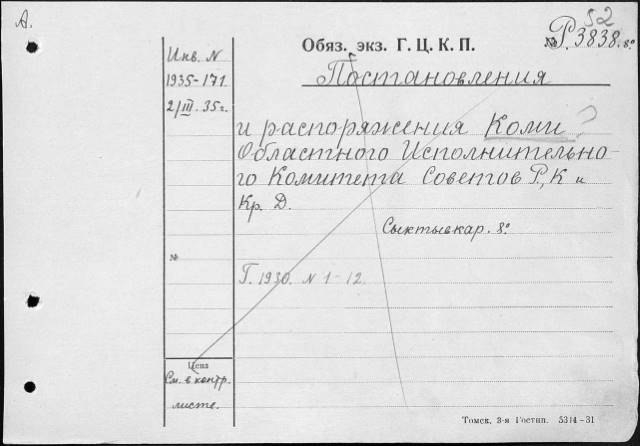 А.
52
Обяз. экз. Г. Ц. К. П.
№ Р. 3838. 8º
Инв. N
1935-171
2/III. 35 г.
Постановления
и распоряжения Коми
Областного Исполнительно-
го Комитета Советов Р, К и
Кр. Д.
Сыктывкар. 8º
№
Г. 1930. N 1-12.
Цена
См. в контр.
листе.
Томск, 3-я Гостип. 5314-31